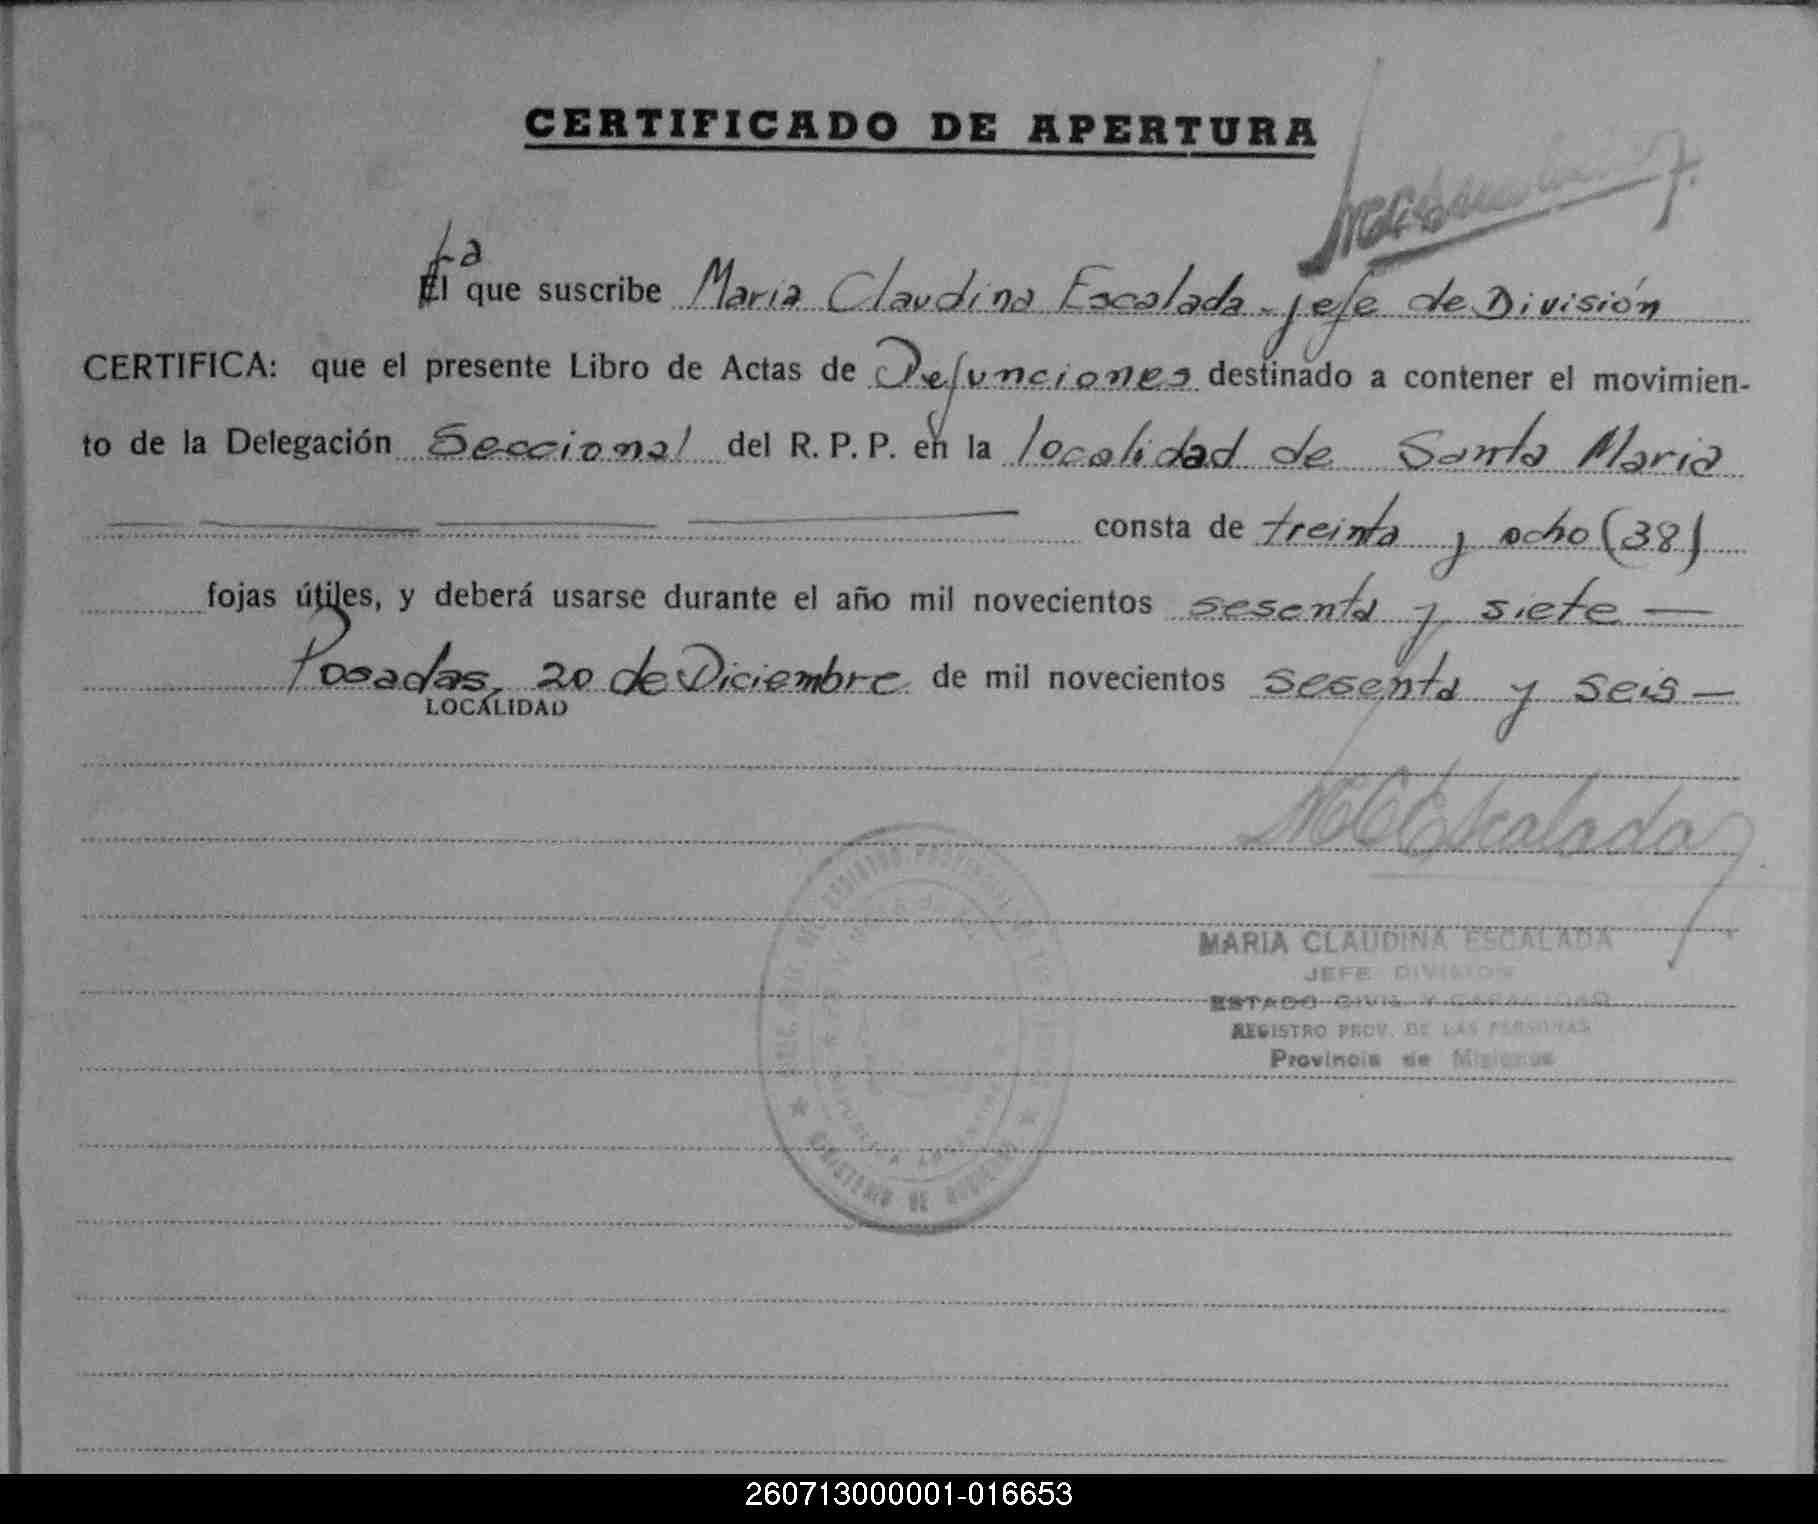 CERTIFICADO DE APERTURA
La
El que suscribe Maria Claudina Escalada - jefe de División
CERTIFICA: que el presente Libro de Actas de Defunciones destinado a contener el movimien-
to de la Delegación Seccional del R. P. P. en la localidad de Santa Maria
consta de treinta y ocho (38)
fojas útiles, y deberá usarse durante el año mil novecientos sesenta y siete —
Posadas, 20 de Diciembre de mil novecientos sesenta y seis —
LOCALIDAD
MCEscalada
MARIA CLAUDINA ESCALADA
JEFE DIVISION
ESTADO CIVIL Y CAPACIDAD
REGISTRO PROV. DE LAS PERSONAS
Provincia de Misiones
REGISTRO PROVINCIAL DE LAS
MINISTERIO DE GOBIERNO
REPUBLICA ARGENTINA
260713000001-016653